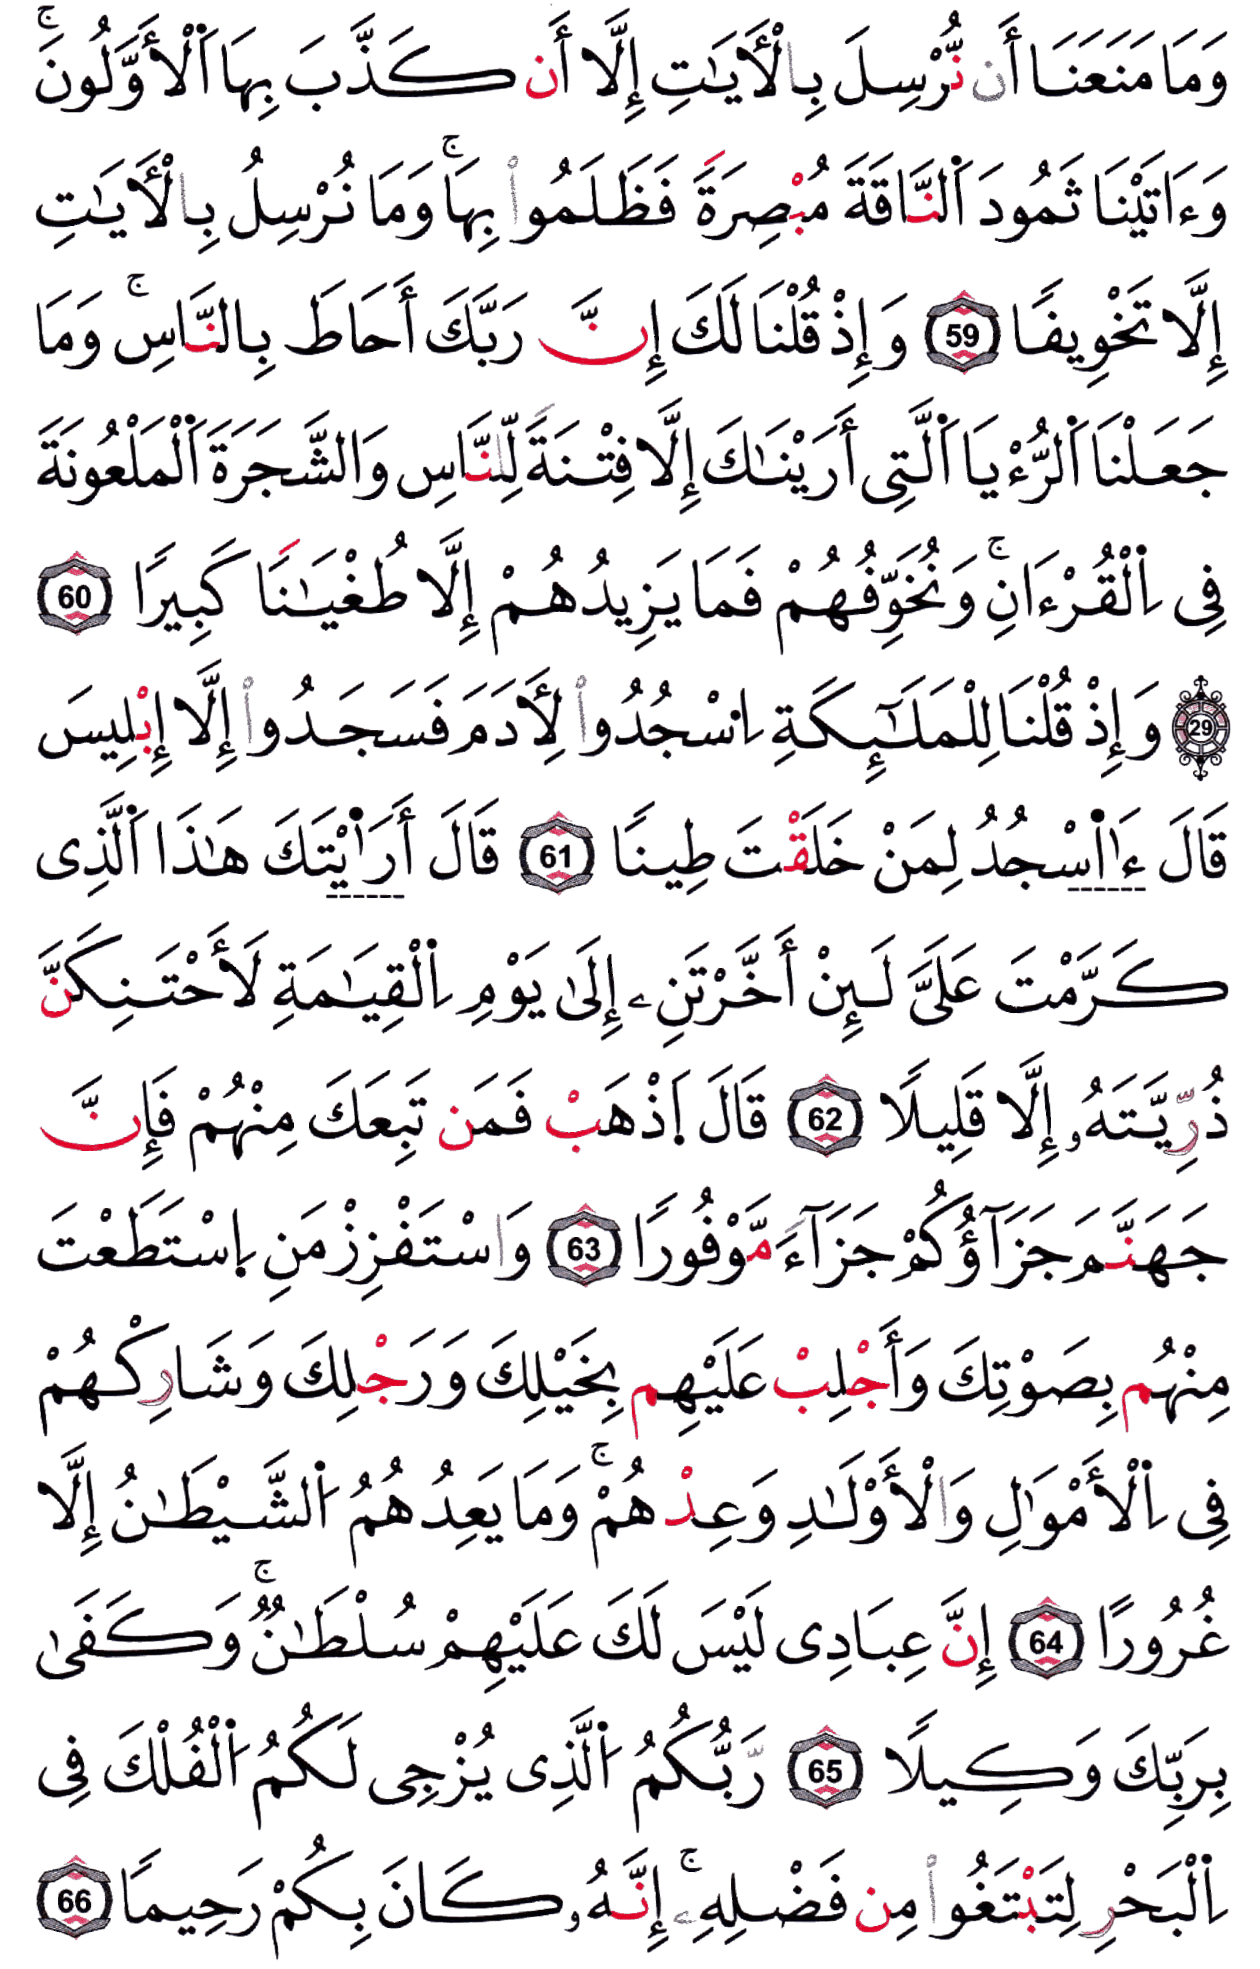 وَمَا مَنَعَنَا أَن نُّرْسِلَ بِالْأَيَٰتِ إِلَّا أَن كَذَّبَ بِهَا اَ۬لْأَوَّلُونَۚ
وَءَاتَيْنَا ثَمُودَ اَ۬لنَّاقَةَ مُبْصِرَةً فَظَلَمُواْ بِهَاۚ وَمَا نُرْسِلُ بِالْأَيَٰتِ
إِلَّا تَخْوِيفًا 59 وَإِذْ قُلْنَا لَكَ إِنَّ رَبَّكَ أَحَاطَ بِالنَّاسِۚ وَمَا
جَعَلْنَا اَ۬لرُّءْيَا اَ۬لَّتِى أَرَيْنَٰكَ إِلَّا فِتْنَةً لِّلنَّاسِ وَالشَّجَرَةَ اَ۬لْمَلْعُونَةَ
فِى اِ۬لْقُرْءَانِۚ وَنُخَوِّفُهُمْ فَمَا يَزِيدُهُمْ إِلَّا طُغْيَٰنًا كَبِيرًا 60
29 وَإِذْ قُلْنَا لِلْمَلَٰٓئِكَةِ اِ۟سْجُدُواْ لِأَدَمَ فَسَجَدُواْ إِلَّا إِبْلِيسَ
قَالَ ءَا۬سْجُدُ لِمَنْ خَلَقْتَ طِينًا 61 قَالَ أَرَا۬يْتَكَ هَٰذَا اَ۬لَّذِى
كَرَّمْتَ عَلَىَّ لَئِنْ أَخَّرْتَنِۦ إِلَىٰ يَوْمِ اِ۬لْقِيَٰمَةِ لَأَحْتَنِكَنَّ
ذُرِّيَّتَهُۥ إِلَّا قَلِيلًا 62 قَالَ اَ۪ذْهَبْ فَمَن تَبِعَكَ مِنْهُمْ فَإِنَّ
جَهَنَّمَ جَزَآؤُكُمْ جَزَآءً مَّوْفُورًا 63 وَاسْتَفْزِزْ مَنِ اِ۪سْتَطَعْتَ
مِنْهُم بِصَوْتِكَ وَأَجْلِبْ عَلَيْهِم بِخَيْلِكَ وَرَجْلِكَ وَشَارِكْهُمْ
فِى اِ۬لْأَمْوَٰلِ وَالْأَوْلَٰدِ وَعِدْهُمْۚ وَمَا يَعِدُهُمُ اُ۬لشَّيْطَٰنُ إِلَّا
غُرُورًا 64 إِنَّ عِبَادِى لَيْسَ لَكَ عَلَيْهِمْ سُلْطَٰنٌۚ وَكَفَىٰ
بِرَبِّكَ وَكِيلًا 65 رَّبُّكُمُ اُ۬لَّذِى يُزْجِى لَكُمُ اُ۬لْفُلْكَ فِى
اِ۬لْبَحْرِ لِتَبْتَغُواْ مِن فَضْلِهِۦۚ إِنَّهُۥ كَانَ بِكُمْ رَحِيمًا 66